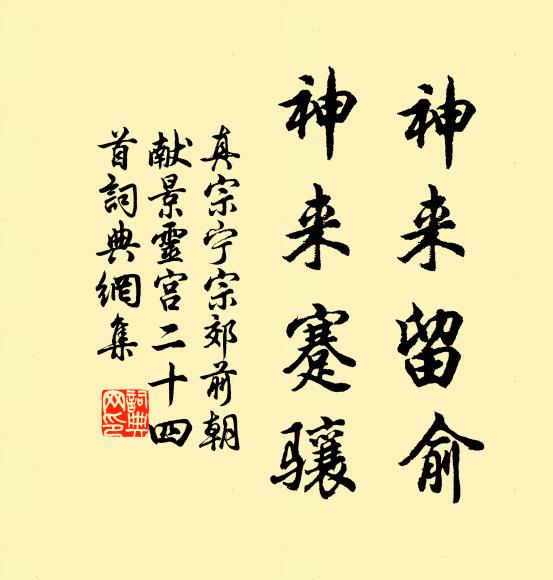 神来留俞
神来蹇骧
真宗宁宗郊前朝
献景靈宫二十四
首詞典網集
詞典网印